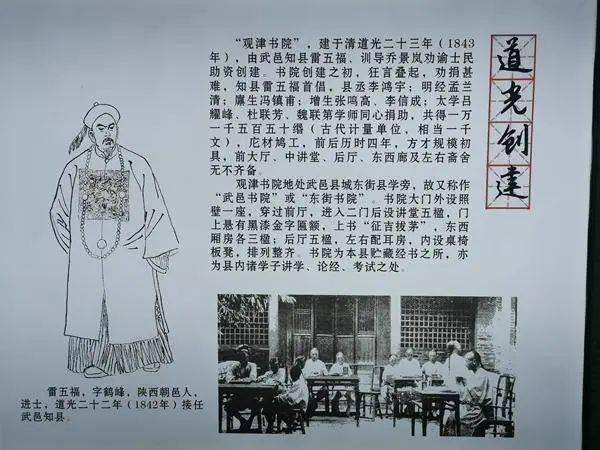 道光创建
“观津书院”，建于清道光二十三年（1843
年），由武邑知县雷五福、训导乔景岚劝谕士民
助资创建。书院创建之初，狂言叠起，劝捐甚
难，知县雷五福首倡，县丞李鸿宇；明经孟兰
清；廪生冯镇甫；增生张鸣高、李信成；太学吕
耀峰、杜联芳、魏联第学师同心捐助，共得一万
一千五百五十缗（古代计量单位，相当一千
文），庀材鸠工，前后历时四年，方才规模初
具，前大厅、中讲堂、后厅、东西廊及左右斋舍
无不齐备。
观津书院地处武邑县城东街县学旁，故又称作
“武邑书院”或“东街书院”。书院大门外设照
壁一座，穿过前厅，进入二门后设讲堂五楹，门
上悬有黑漆金字匾额，上书“征吉拔茅”，东西
厢房各三楹；后厅五楹，左右配耳房，内设桌椅
板凳，排列整齐。书院为本县贮藏经书之所，亦
为县内诸学子讲学、论经、考试之处。
雷五福，字鹤峰，陕西朝邑人，
进士，道光二十二年（1842年）接任
武邑知县。